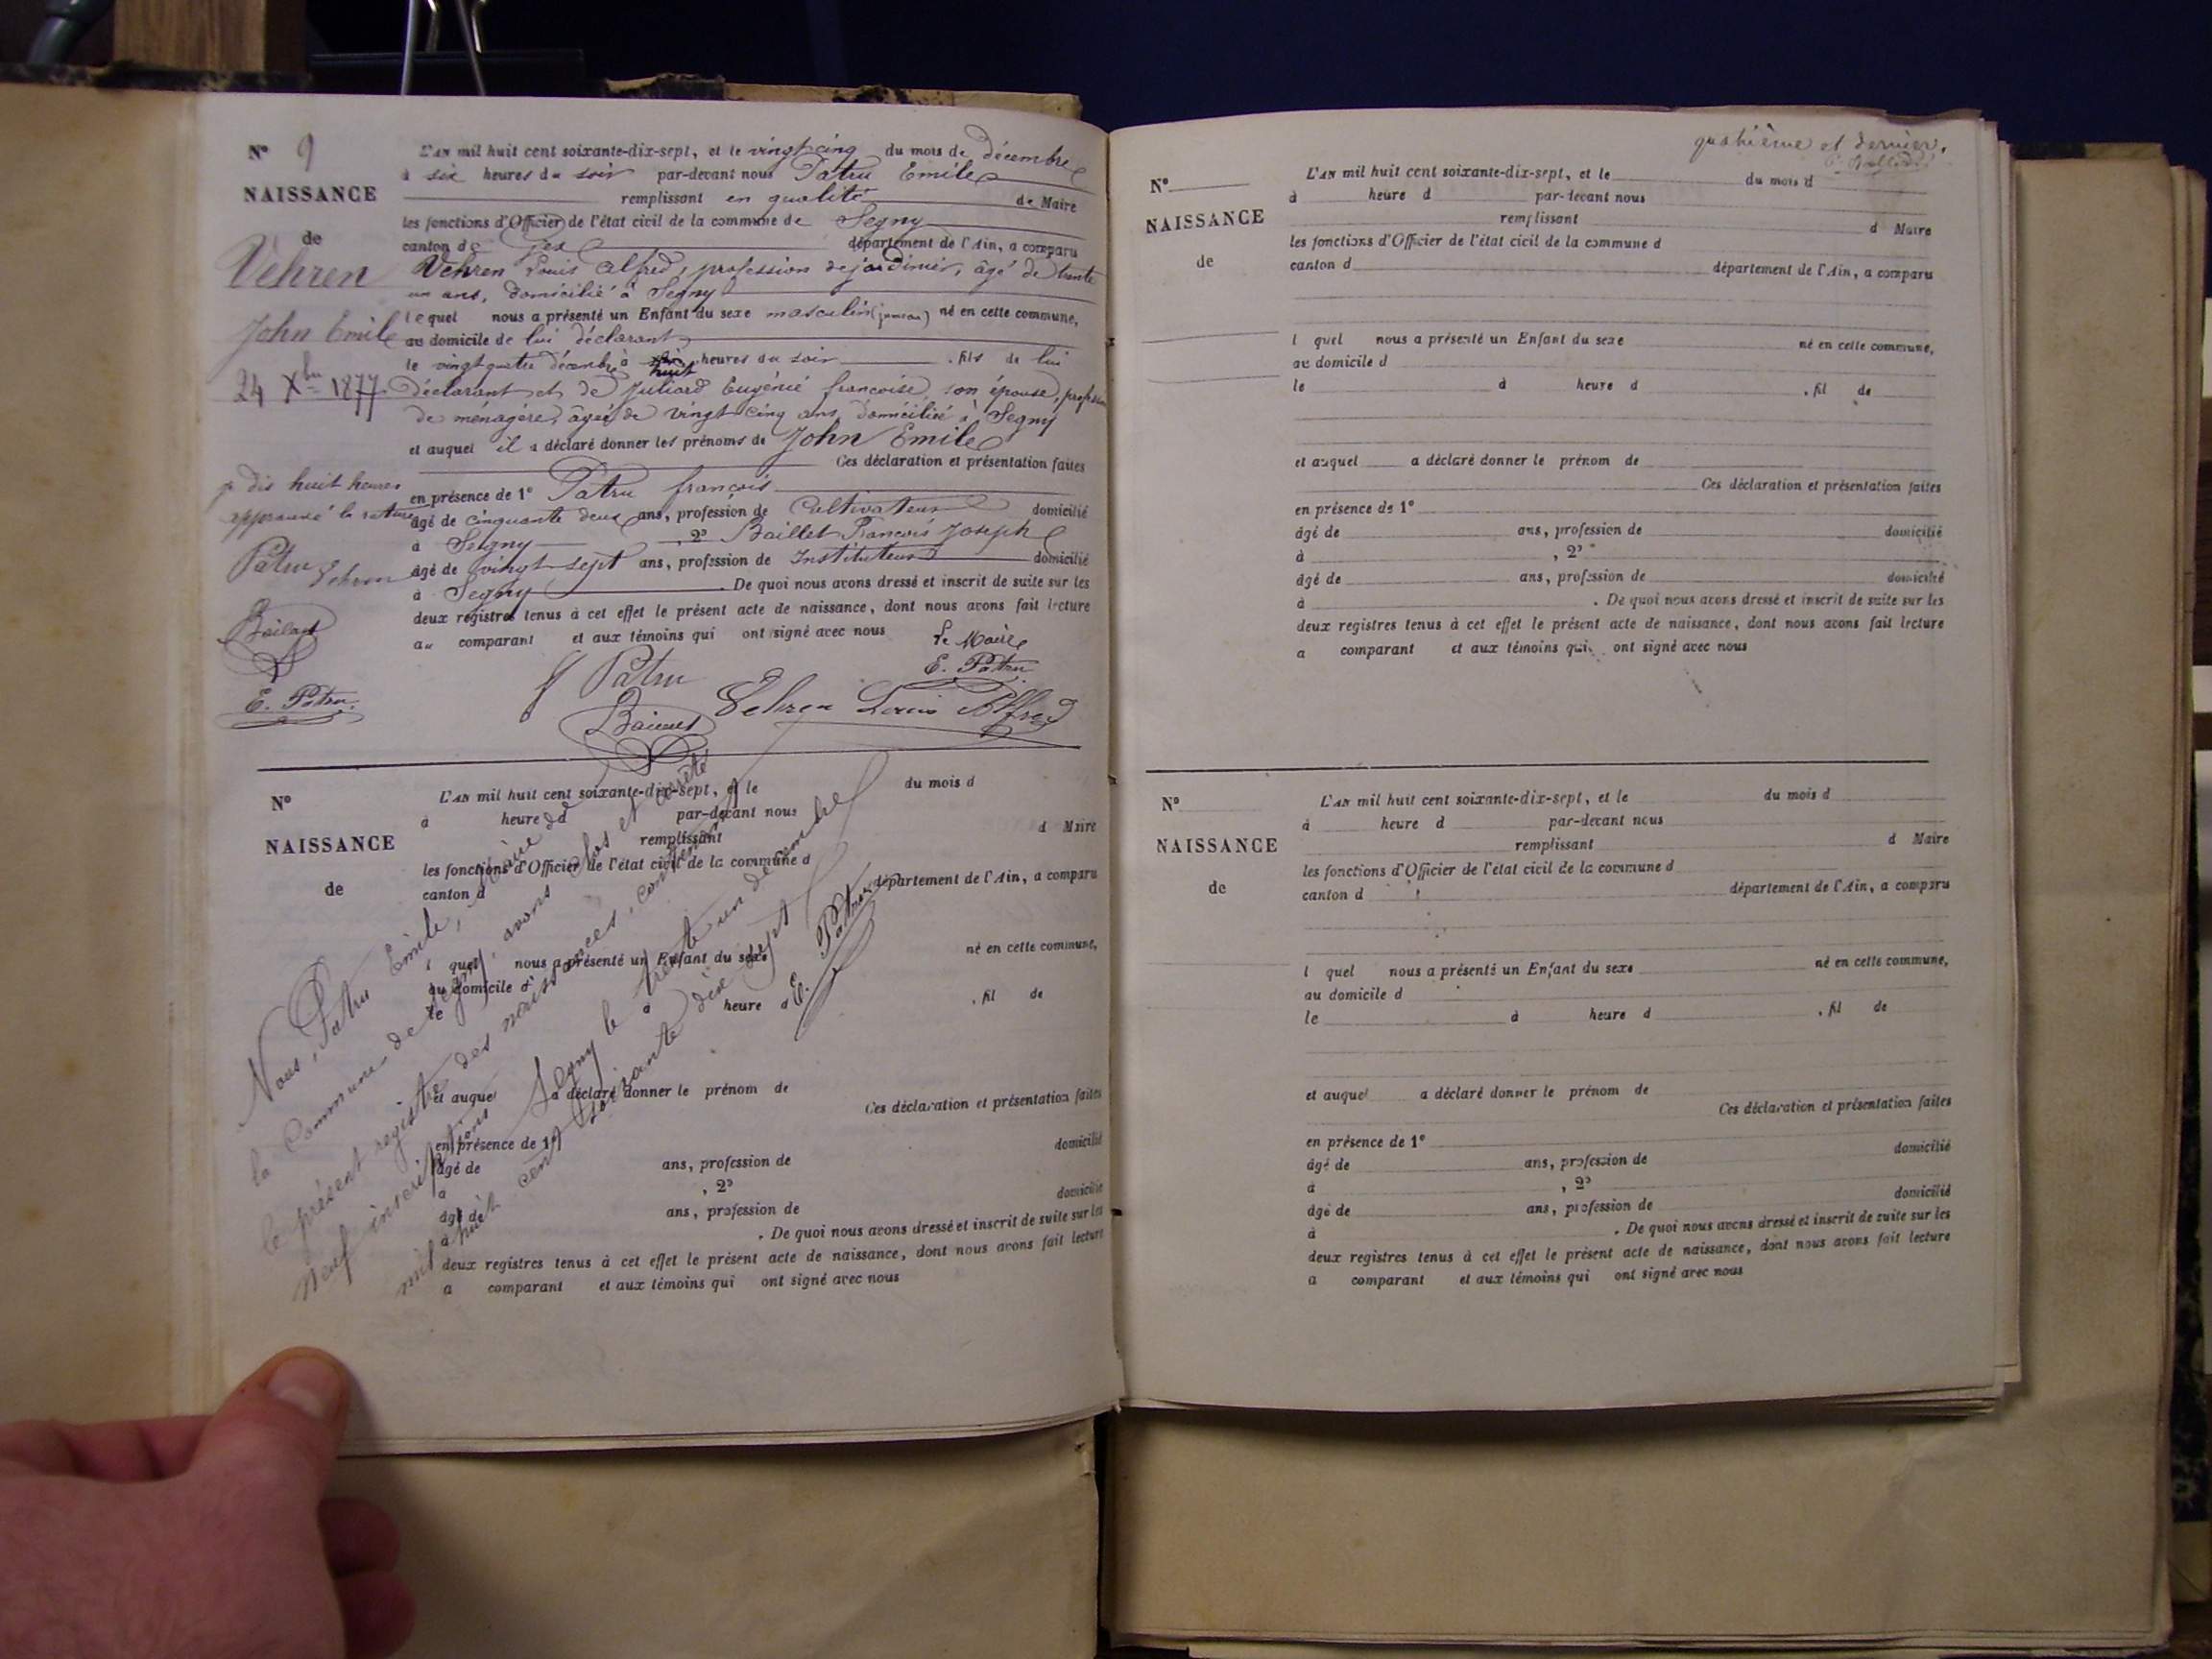 N° 9
NAISSANCE
de
Vehren
John Emile
24 Xbre 1877
L'AN mil huit cent soixante-dix-sept, et le vingt cinq du mois de décembre
à six heures du soir par-devant nous Patru Emile
remplissant en qualité de Maire
les fonctions d'Officier de l'état civil de la commune de Segny
canton de Gex département de l'Ain, a comparu
Vehren Louis Alfred, profession de jardinier, âgé de trente
un ans, domicilié à Segny
lequel nous a présenté un Enfant du sexe masculin (jumeau) né en cette commune,
au domicile de lui déclarant
le vingt quatre décembre à huit heures du soir, fils de lui
déclarant et de Juliard Eugénie françoise, son épouse, profession
de ménagère, âgée de vingt cinq ans, domiciliée à Segny
et auquel il a déclaré donner les prénoms de John Emile
Ces déclaration et présentation faites
en présence de 1° Patru françois
âgé de cinquante deux ans, profession de Cultivateur domicilié
à Segny, 2° Baillet François Joseph
âgé de vingt sept ans, profession de Instituteur domicilié
à Segny. De quoi nous avons dressé et inscrit de suite sur les
deux registres tenus à cet effet le présent acte de naissance, dont nous avons fait lecture
au comparant et aux témoins qui ont signé avec nous
huit heures
approuvé la rature
Patru Vehren
E. Patru
Le Maire
E. Patru
Patru
Vehren Louis Alfred
N°
NAISSANCE
de
L'AN mil huit cent soixante-dix-sept, et le du mois d
à heure d par-devant nous
remplissant d Maire
les fonctions d'Officier de l'état civil de la commune d
canton d département de l'Ain, a comparu
l quel nous a présenté un Enfant du sexe né en cette commune,
au domicile d
le à heure d , fil de
et auquel a déclaré donner le prénom de
Ces déclaration et présentation faites
en présence de 1° domicilié
âgé de ans, profession de
à , 2° domicilié
âgé de ans, profession de
à . De quoi nous avons dressé et inscrit de suite sur les
deux registres tenus à cet effet le présent acte de naissance, dont nous avons fait lecture
a comparant et aux témoins qui ont signé avec nous
Nous, Patru Emile, Maire de
la Commune de Segny, avons clos et arrêté
le présent registre des naissances, contenant
neuf inscriptions
Segny le trente un décembre
mil huit cent soixante dix sept
E. Patru
quatrième et dernier.
N°
NAISSANCE
de
L'AN mil huit cent soixante-dix-sept, et le du mois d
à heure d par-devant nous
remplissant d Maire
les fonctions d'Officier de l'état civil de la commune d
canton d département de l'Ain, a comparu
l quel nous a présenté un Enfant du sexe né en cette commune,
au domicile d
le à heure d , fil de
et auquel a déclaré donner le prénom de
Ces déclaration et présentation faites
en présence de 1°
âgé de ans, profession de domicilié
à , 2°
âgé de ans, profession de domicilié
à . De quoi nous avons dressé et inscrit de suite sur les
deux registres tenus à cet effet le présent acte de naissance, dont nous avons fait lecture
a comparant et aux témoins qui ont signé avec nous
N°
NAISSANCE
de
L'AN mil huit cent soixante-dix-sept, et le du mois d
à heure d par-devant nous
remplissant d Maire
les fonctions d'Officier de l'état civil de la commune d
canton d département de l'Ain, a comparu
l quel nous a présenté un Enfant du sexe né en cette commune,
au domicile d
le à heure d , fil de
et auquel a déclaré donner le prénom de
Ces déclaration et présentation faites
en présence de 1° domicilié
âgé de ans, profession de
à , 2° domicilié
âgé de ans, profession de
à . De quoi nous avons dressé et inscrit de suite sur les
deux registres tenus à cet effet le présent acte de naissance, dont nous avons fait lecture
a comparant et aux témoins qui ont signé avec nous